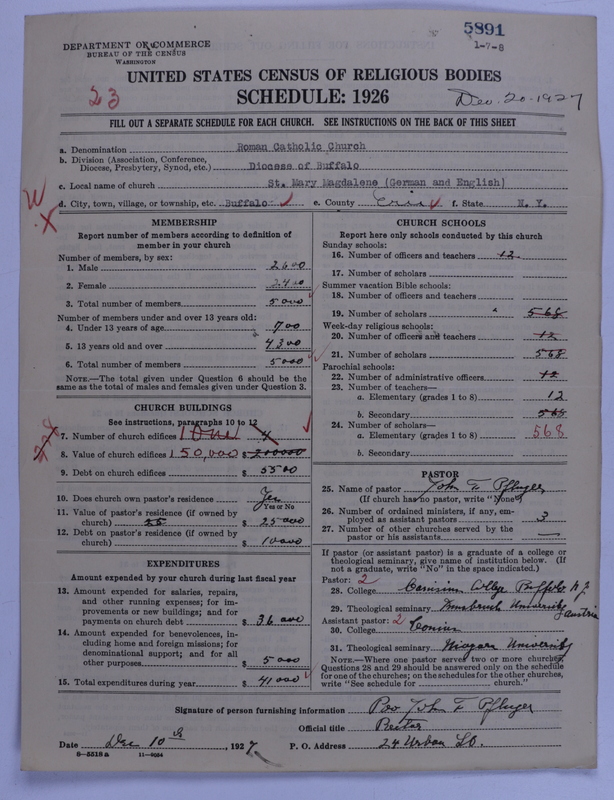 5891
1-7-8
DEPARTMENT OF COMMERCE
BUREAU OF THE CENSUS
WASHINGTON
UNITED STATES CENSUS OF RELIGIOUS BODIES
23
SCHEDULE: 1926
Dec. 20-1927
FILL OUT A SEPARATE SCHEDULE FOR EACH CHURCH. SEE INSTRUCTIONS ON THE BACK OF THIS SHEET
a. Denomination Roman Catholic Church
b. Division (Association, Conference, Diocese, Presbytery, Synod, etc.) Diocese of Buffalo
c. Local name of church St. Mary Magdalene (German and English)
d. City, town, village, or township, etc. Buffalo e. County Erie f. State N. Y.
MEMBERSHIP
Report number of members according to definition of
member in your church
Number of members, by sex:
1. Male 2600
2. Female 2400
3. Total number of members 5000
Number of members under and over 13 years old:
4. Under 13 years of age 700
5. 13 years old and over 4300
6. Total number of members 5000
NOTE.—The total given under Question 6 should be the
same as the total of males and females given under Question 3.
CHURCH BUILDINGS
See instructions, paragraphs 10 to 12
7. Number of church edifices 1 One 4
8. Value of church edifices 150,000 $ 200000
9. Debt on church edifices $ 5500
10. Does church own pastor's residence Yes
Yes or No
11. Value of pastor's residence (if owned by
church) 25 $ 25000
12. Debt on pastor's residence (if owned by
church) $ 10000
EXPENDITURES
Amount expended by your church during last fiscal year
13. Amount expended for salaries, repairs,
and other running expenses; for im-
provements or new buildings; and for
payments on church debt $ 36000
14. Amount expended for benevolences, in-
cluding home and foreign missions; for
denominational support; and for all
other purposes $ 5000
15. Total expenditures during year $ 41000
CHURCH SCHOOLS
Report here only schools conducted by this church
Sunday schools:
16. Number of officers and teachers 12
17. Number of scholars
Summer vacation Bible schools:
18. Number of officers and teachers
19. Number of scholars 568
Week-day religious schools:
20. Number of officers and teachers 12
21. Number of scholars 568
Parochial schools:
22. Number of administrative officers 12
23. Number of teachers—
a. Elementary (grades 1 to 8) 12
b. Secondary 568
24. Number of scholars—
a. Elementary (grades 1 to 8) 568
b. Secondary
PASTOR
25. Name of pastor John F Pfluger
(If church has no pastor, write "None")
26. Number of ordained ministers, if any, em-
ployed as assistant pastors 3
27. Number of other churches served by the
pastor or his assistants —
If pastor (or assistant pastor) is a graduate of a college or
theological seminary, give name of institution below. (If
not a graduate, write "No" in the space indicated.)
Pastor: 2
28. College Canisius College Buffalo N Y
29. Theological seminary Innsbruck University Austria
Assistant pastor: 2
30. College
31. Theological seminary Niagara University
NOTE.—Where one pastor serves two or more churches,
Questions 28 and 29 should be answered only on the schedule
for one of the churches; on the schedules for the other churches,
write "See schedule for church."
Signature of person furnishing information Rev John F Pfluger
Official title Rector
Date Dec 10th, 1927 P. O. Address 24 Urban St.
8—5518 a 11—9034